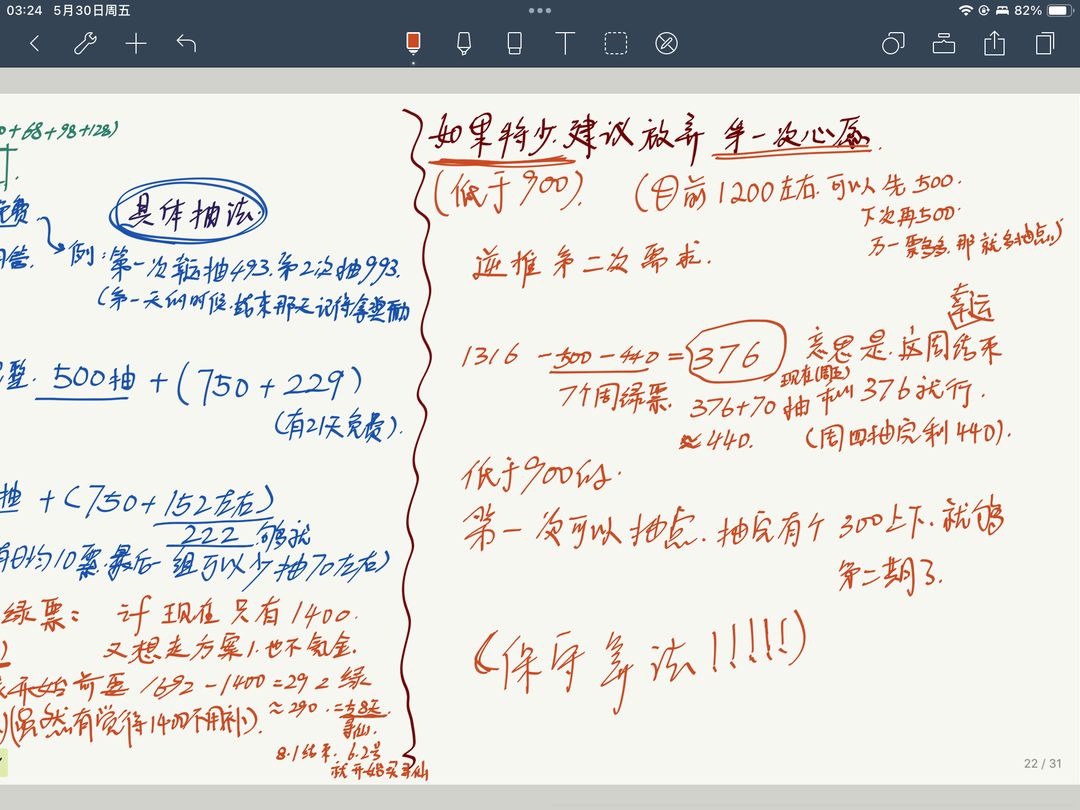 03:24 5月30日周五
82%
0+68+98+128)
免费
具体抽法.
例:第一次幸运抽493.第2次抽993.
(第一天的时候.结束那天记得拿奖励
500抽 + (750+229)
(有21天免费).
抽 + (750+152左右)
222 够就
有日均10票.最后一组可以少抽70左右)
绿票: if 现在只有1400.
又想走方案1.也不氪金.
开始前要 1692-1400=292绿
(虽然有觉得1400不用补). ≈290.=58天
寻仙.
8.1结束. 6.2号
就开始买寻仙
如果特少.建议放弃 第一次心愿.
(低于900). (目前1200左右.可以先500.
下次再500.
万一票多多.那就多抽点)
逆推第二次需求.
幸运
1316-500-440=376 意思是.这周结束
7个周绿票. 现在(周五)
376+70 抽到376就行.
≈440. (周四抽完剩440).
低于900的.
第一次可以抽点.抽完有个300上下.就够
第二期了.
(保守算法!!!!!)
22 / 31